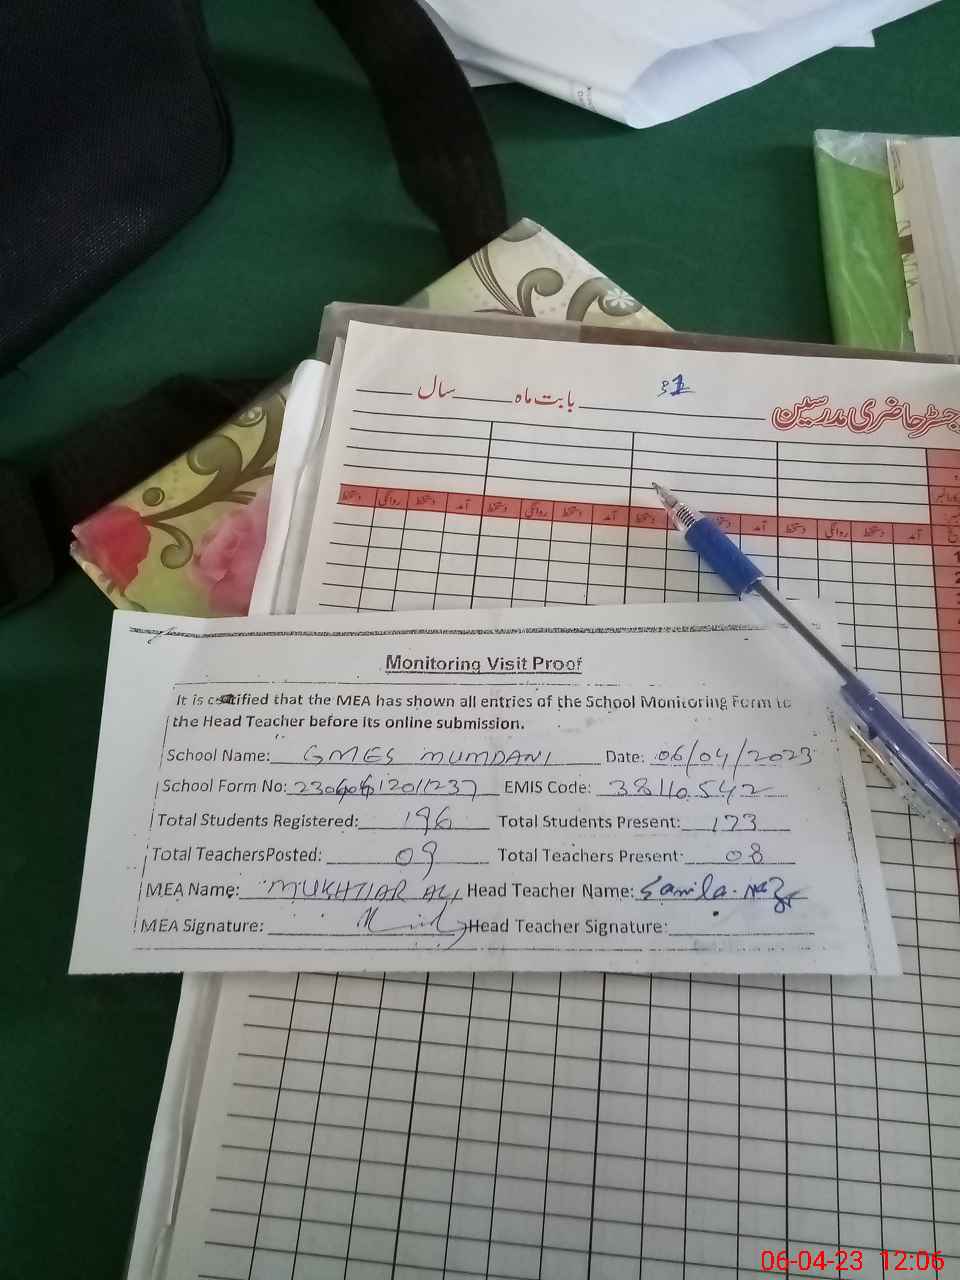 سال ـــــ بابت ماہ ـــــ 1
رجسٹر حاضری مدرسین
دستخط روانگی دستخط آمد دستخط روانگی دستخط آمد دستخط دستخط آمد دستخط روانگی دستخط آمد
Monitoring Visit Proof
It is certified that the MEA has shown all entries of the School Monitoring Form to
the Head Teacher before its online submission.
School Name: GMES MUMDANI Date: 06/04/2023
School Form No: EMIS Code: 38110542
Total Students Registered: 196 Total Students Present: 173
Total TeachersPosted: 09 Total Teachers Present: 08
MEA Name: MUKHTIAR ALI Head Teacher Name: Samila Naz
MEA Signature: Head Teacher Signature:
06-04-23 12:06